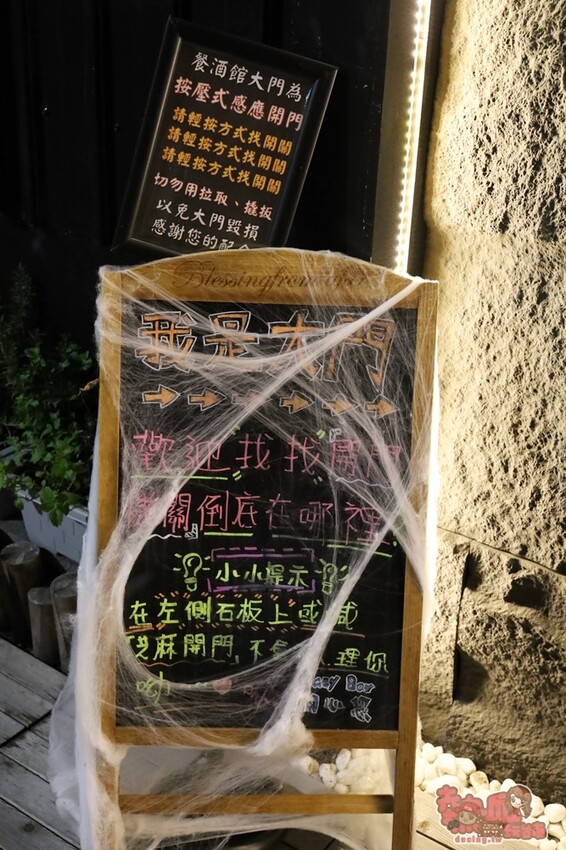 餐酒館大門為
按壓式感應開門
請輕按方式找開關
請輕按方式找開關
請輕按方式找開關
切勿用拉取、撬扳
以免大門毀損
感謝您的配合
Blessing from
我是大門
歡迎找找開門
機關倒底在哪裡
小小提示
在左側石板上或喊
芝麻開門,不會 人理你
呦
Boy
關心您
大口老師
deeing.tw